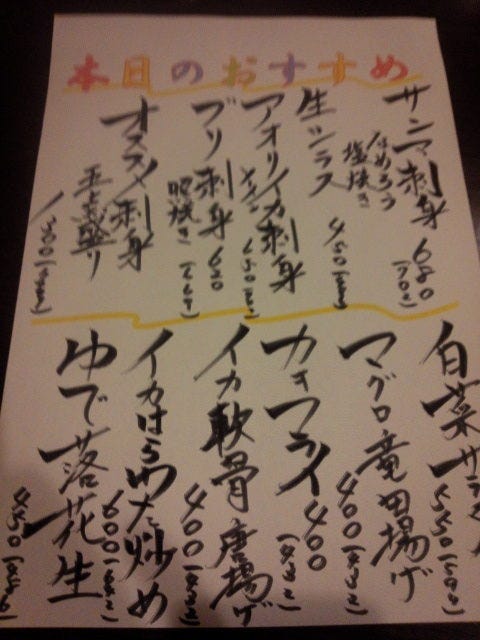 本日のおすすめ
サンマ刺身 680
なめろう
塩焼き
生シラス 450
アオリイカ刺身 650
ブリ刺身 620
照焼き
オススメ刺身
五点盛り
1300
白菜サラダ 550
マグロ竜田揚げ 400(432)
カキフライ 400(432)
イカ軟骨唐揚げ 400(432)
イカはらわた炒め 600
ゆで落花生 450